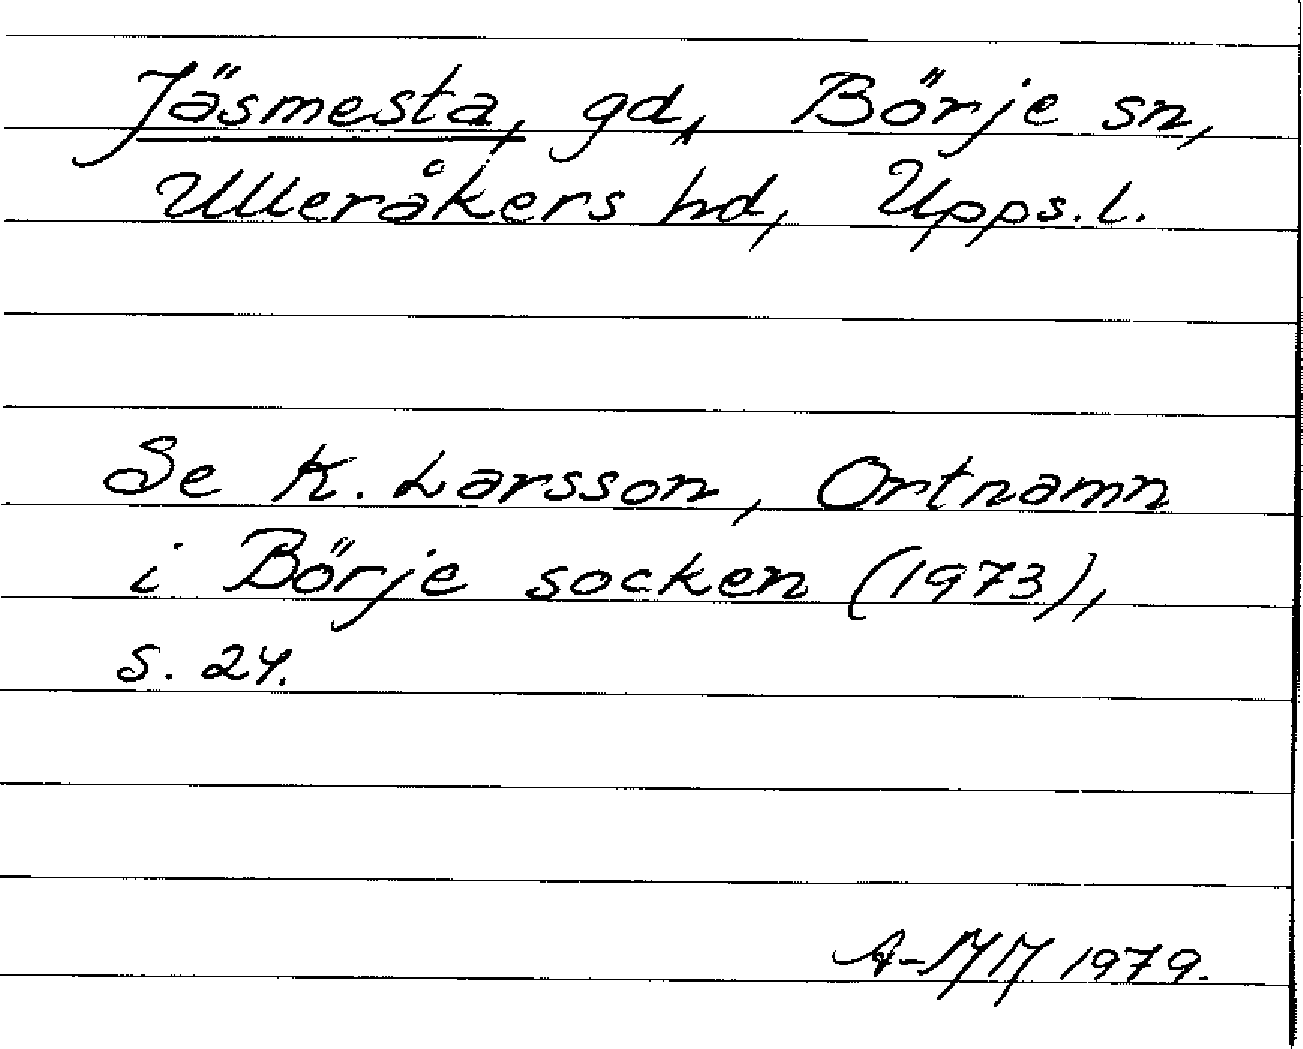 Jäsmesta, gd, Börje sn,
Ulleråkers hd, Upps. l.
Se K. Larsson, Ortnamn
i Börje socken (1973),
s. 24.
1979.